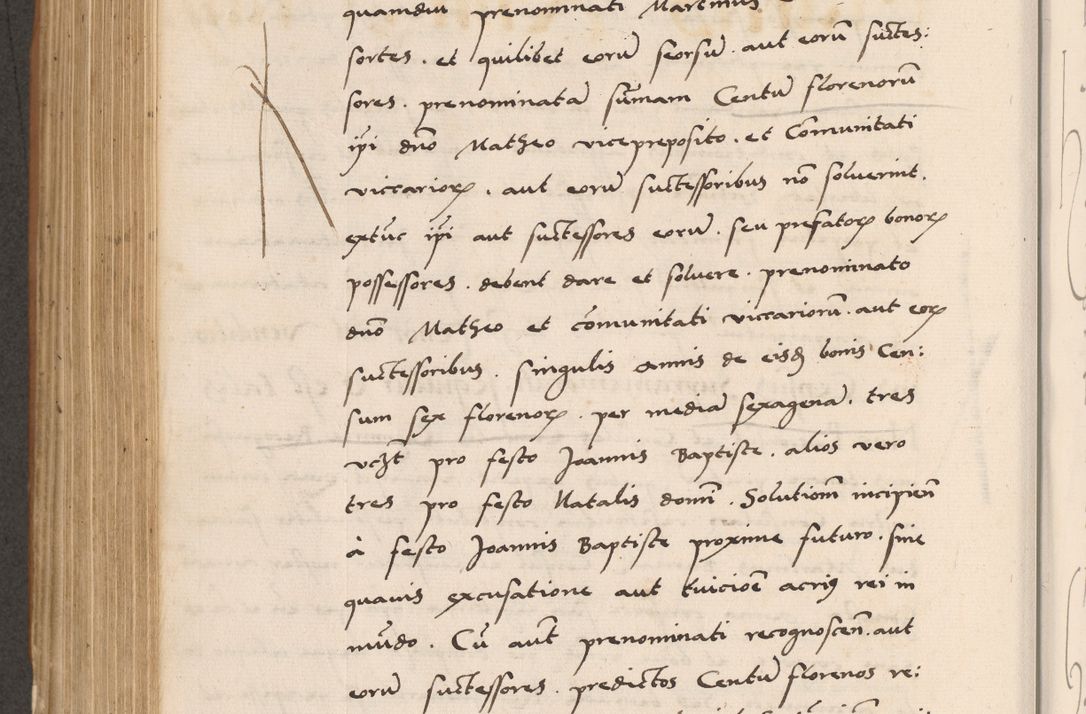 quamdiu prenominati Martinus
sortes . et quilibet eorū seorsū . aut eorū succes:
sores . prenominatā sūmam Centū florenorū
ipi dnō Matheo vicepreposito . et Cōmunitati
viccarioꝝ . aut eorū successoribus nō soluerint .
extūc ipi aut successores eorū . seu prefatoꝝ bonoꝝ
possessores . debent dare et soluere . prenominato
dnō Matheo et cōmunitati viccariorū . aut eoꝝ
successoribus . singulis annis de eisđ bonis Cen:
sum sex florenoꝝ . per mediā sexagenā . tres
vcꝫt pro festo Joannis Baptiste . alios vero
tres pro festo Natalis domī . Solutionē incipien̄
à festo Joannis Baptiste proxime futuro . sine
quauis excusatione aut rei in
mūdo . Cū aut̄ prenominati recognoscen̄ . aut
eorū successores . predictos Centū florenos re: